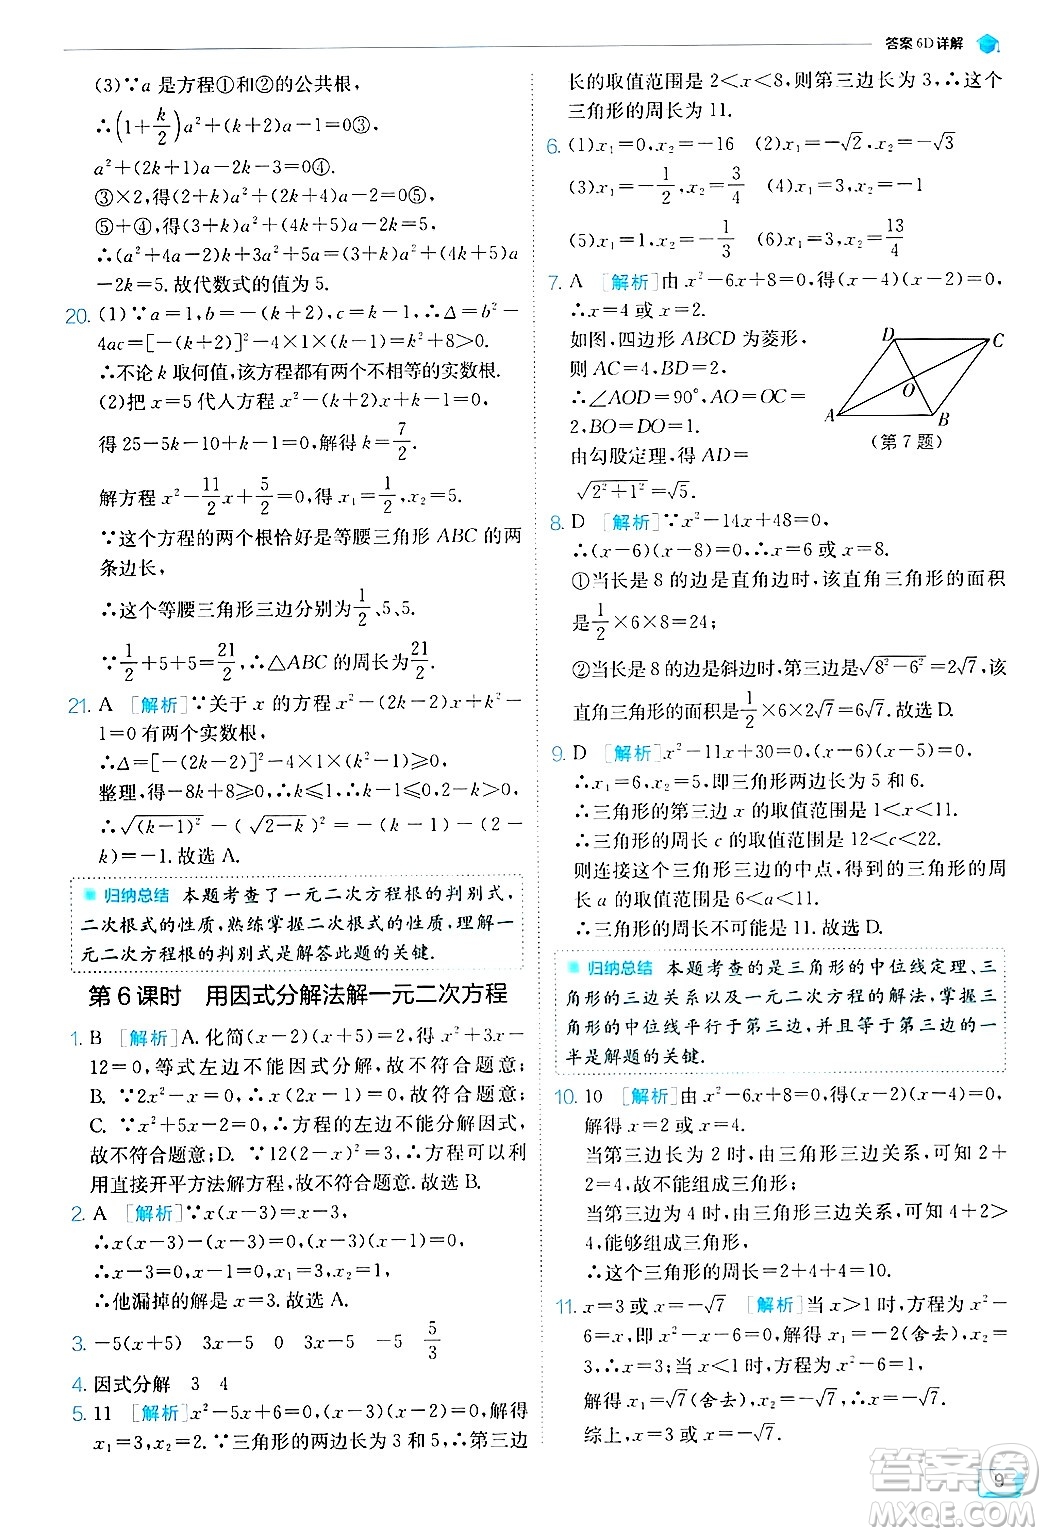 答案 6D 详解
(3)∵a 是方程①和②的公共根,
∴(1+k/2)a²+(k+2)a-1=0③,
a²+(2k+1)a-2k-3=0④.
③×2,得(2+k)a²+(2k+4)a-2=0⑤.
⑤+④,得(3+k)a²+(4k+5)a-2k=5.
∴(a²+4a-2)k+3a²+5a=(3+k)a²+(4k+5)a-2k=5. 故代数式的值为 5.
20. (1)∵a=1,b=-(k+2),c=k-1,∴Δ=b²-
4ac=[-(k+2)]²-4×1×(k-1)=k²+8>0.
∴不论 k 取何值,该方程都有两个不相等的实数根.
(2)把 x=5 代人方程 x²-(k+2)x+k-1=0,
得 25-5k-10+k-1=0,解得 k=7/2.
解方程 x²-11/2x+5/2=0,得 x₁=1/2,x₂=5.
∵这个方程的两个根恰好是等腰三角形 ABC 的两
条边长,
∴这个等腰三角形三边分别为1/2、5、5.
∵1/2+5+5=21/2,∴△ABC 的周长为21/2.
21. A [解析]∵关于 x 的方程 x²-(2k-2)x+k²-
1=0 有两个实数根,
∴Δ=[-(2k-2)]²-4×1×(k²-1)⩾0,
整理,得-8k+8⩾0,∴k⩽1,∴k-1⩽0,2-k>0,
∴√(k-1)²-(√2-k)²=-(k-1)-(2-k)
=-1.故选 A.
归纳总结 本题考查了一元二次方程根的判别式,
二次根式的性质,熟练掌握二次根式的性质,理解一
元二次方程根的判别式是解答此题的关键.
第 6 课时 用因式分解法解一元二次方程
1. B [解析]A.化简(x-2)(x+5)=2,得 x²+3x-
12=0,等式左边不能因式分解,故不符合题意;
B. ∵2x²-x=0,∴x(2x-1)=0,故符合题意;
C. ∵x²+5x-2=0,∴方程的左边不能分解因式,
故不符合题意; D. ∵12(2-x)²=3,∴方程可以利
用直接开平方法解方程,故不符合题意.故选 B.
2. A [解析]∵x(x-3)=x-3,
∴x(x-3)-(x-3)=0,∴(x-3)(x-1)=0,
∴x-3=0 或 x-1=0,x₁=3,x₂=1,
∴他漏掉的解是 x=3.故选 A.
3. -5(x+5) 3x-5 0 3x-5 -5 5/3
4. 因式分解 3 4
5. 11 [解析]x²-5x+6=0,(x-3)(x-2)=0,解得
x₁=3,x₂=2. ∵三角形的两边长为 3 和 5,∴第三边
长的取值范围是 2<x<8,则第三边长为 3,∴这个
三角形的周长为 11.
6. (1)x₁=0,x₂=-16 (2)x₁=-√2,x₂=-√3
(3)x₁=-1/2,x₂=3/4 (4)x₁=3,x₂=-1
(5)x₁=1,x₂=-1/3 (6)x₁=3,x₂=13/4
7. A [解析]由 x²-6x+8=0,得(x-4)(x-2)=0,
∴x=4 或 x=2.
如图,四边形 ABCD 为菱形,
则 AC=4,BD=2.
∴∠AOD=90°,AO=OC=
2,BO=DO=1.
由勾股定理,得 AD=
√2²+1²=√5.
D C O A B
(第 7 题)
8. D [解析]∵x²-14x+48=0,
∴(x-6)(x-8)=0,∴x=6 或 x=8.
①当长是 8 的边是直角边时,该直角三角形的面积
是1/2×6×8=24;
②当长是 8 的边是斜边时,第三边是√8²-6²=2√7,该
直角三角形的面积是1/2×6×2√7=6√7.故选 D.
9. D [解析]x²-11x+30=0,(x-6)(x-5)=0,
∴x₁=6,x₂=5,即三角形两边长为 5 和 6.
∴三角形的第三边 x 的取值范围是 1<x<11.
∴三角形的周长 c 的取值范围是 12<c<22.
则连接这个三角形三边的中点,得到的三角形的周
长 a 的取值范围是 6<a<11.
∴三角形的周长不可能是 11.故选 D.
归纳总结 本题考查的是三角形的中位线定理、三
角形的三边关系以及一元二次方程的解法,掌握三
角形的中位线平行于第三边,并且等于第三边的一
半是解题的关键.
10. 10 [解析]由 x²-6x+8=0,得(x-2)(x-4)=0,
解得 x=2 或 x=4.
当第三边长为 2 时,由三角形三边关系,可知 2+
2=4,故不能组成三角形;
当第三边长为 4 时,由三角形三边关系,可知 4+2>
4,能够组成三角形,
∴这个三角形的周长=2+4+4=10.
11. x=3 或 x=-√7 [解析]当 x>1 时,方程为 x²-
6=x,即 x²-x-6=0,解得 x₁=-2(舍去),x₂=
3,∴x=3;当 x<1 时,方程为 x²-6=1,
解得 x₁=√7(舍去),x₂=-√7,∴x=-√7,
综上,x=3 或 x=-√7.
9
答案圈
MXQE.COM